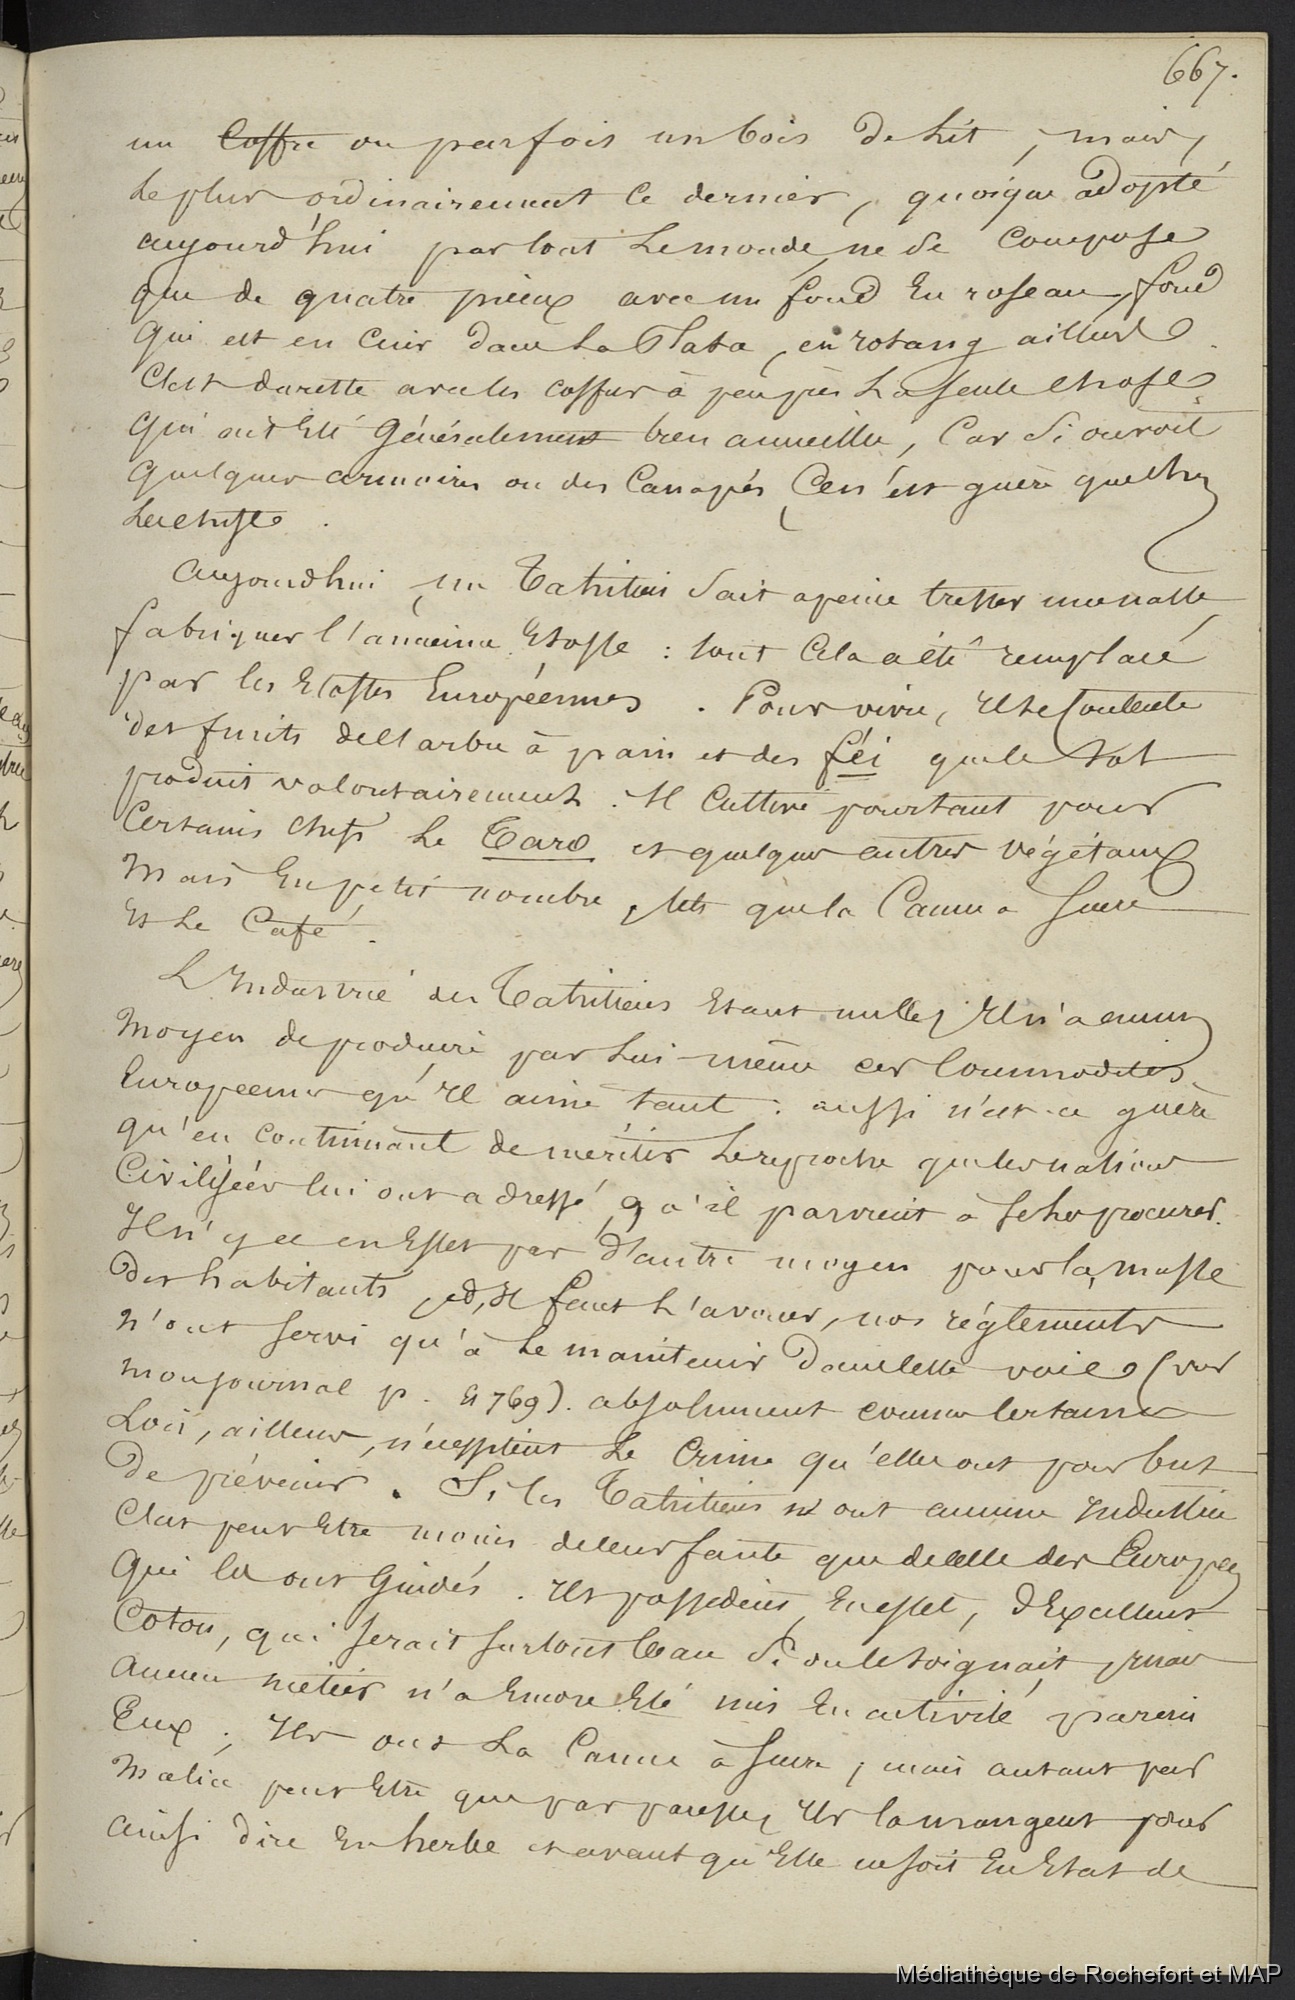 667.
un Coffre ou parfois un bois de lit, mais,
le plus ordinairement ce dernier, quoique adopté
aujourd'hui par tout le monde, ne se compose
que de quatre pieux avec un fond en roseau, fond
qui est en cuir dans la Plata, en rotang ailleurs.
C'est du reste avec les coffres à peu près la seule chose
qui ait été généralement bien accueillie, car si on voit
quelques armoires ou des canapés, ce n'est guère que chez
les chefs.
Aujourd'hui, un Tahitien sait à peine tresser une natte,
fabriquer l'ancienne Etoffe : tout cela a été remplacé
par les Etoffes Européennes. Pour vivre, il se contente
des fruits de l'arbre à pain et des féi que le sol
produit volontairement. Il cultive pourtant pour
certains chefs le Taro et quelques autres végétaux
mais en petit nombre, tels que la Canne a sucre
et le Café.
L'Industrie des Tahitiens étant nulle, il n'a aucun
moyen de produire par lui-même ces commodités
Européennes qu'il aime tant : aussi n'est-ce guère
qu'en continuant de mériter le reproche que les nations
civilisées lui ont adressé, qu'il parvient à se les procurer.
Il n'y a en effet pas d'autre moyen pour la masse
des habitants, et, il faut l'avouer, nos réglements
n'ont servi qu'à le maintenir dans cette voie (voir
mon journal p. et 769). absolument comme certaines
Lois, ailleurs, n'empêchent le crime qu'elles ont pour but
de prévenir. Si les Tahitiens n'ont aucune Industrie
c'est peut être moins de leur faute que de celle des Européens
qui les ont guidés. Ils possèdent, en effet, d'Excellent
Coton, qui serait surtout beau si on le soignait, mais
aucun métier n'a encore été mis en activité parmi
Eux ; Ils ont la Canne à sucre ; mais autant par
malice peut être que par paresse, ils la mangent pour
ainsi dire en herbe et avant qu'Elle ne soit en Etat de
Médiathèque de Rochefort et MAP